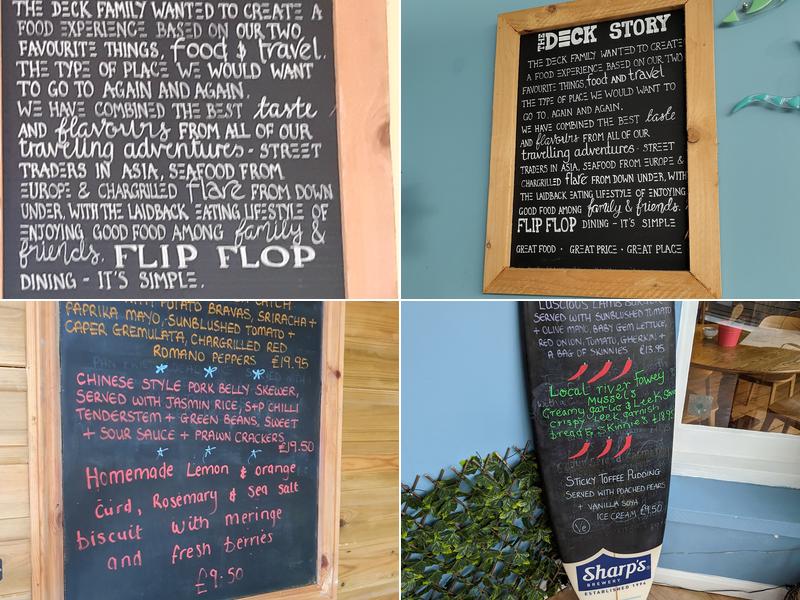 THE DECK FAMILY WANTED TO CREATE A
FOOD EXPERIENCE BASED ON OUR TWO
FAVOURITE THINGS, food & travel.
THE TYPE OF PLACE WE WOULD WANT
TO GO TO AGAIN AND AGAIN.
WE HAVE COMBINED THE BEST taste
AND flavours FROM ALL OF OUR
travelling adventures - STREET
TRADERS IN ASIA, SEAFOOD FROM
EUROPE & CHARGRILLED flare FROM DOWN
UNDER, WITH THE LAIDBACK EATING LIFESTYLE OF
ENJOYING GOOD FOOD AMONG family &
friends. FLIP FLOP
DINING - IT'S SIMPLE.
THE DECK STORY
THE DECK FAMILY WANTED TO CREATE
A FOOD EXPERIENCE BASED ON OUR TWO
FAVOURITE THINGS, food AND travel
THE TYPE OF PLACE WE WOULD WANT TO
GO TO, AGAIN AND AGAIN.
WE HAVE COMBINED THE BEST taste
AND flavours FROM ALL OF OUR
travelling adventures - STREET
TRADERS IN ASIA, SEAFOOD FROM EUROPE &
CHARGRILLED flare FROM DOWN UNDER, WITH
THE LAIDBACK EATING LIFESTYLE OF ENJOYING
GOOD FOOD AMONG family & friends.
FLIP FLOP DINING - IT'S SIMPLE
GREAT FOOD · GREAT PRICE · GREAT PLACE
POTATO BRAVAS, SRIRACHA +
PAPRIKA MAYO, SUNBLUSHED TOMATO +
CAPER GREMULATA, CHARGRILLED RED
ROMANO PEPPERS £19.95
CHINESE STYLE PORK BELLY SKEWER,
SERVED WITH JASMIN RICE, S+P CHILLI
TENDERSTEM + GREEN BEANS, SWEET
+ SOUR SAUCE + PRAWN CRACKERS
£19.50
Homemade Lemon & orange
curd, Rosemary & sea salt
biscuit with meringe
and fresh berries
£9.50
LUSCIOUS LAMB BURGER
SERVED WITH SUNBLUSHED TOMATO
+ OLIVE MAYO, BABY GEM LETTUCE,
RED ONION, TOMATO, GHERKIN +
A BAG OF SKINNIES £13.95
Local river Fowey
Mussels
Creamy garlic & Leek
Crispy Leek garnish
bread & Skinnies
STICKY TOFFEE PUDDING
SERVED WITH POACHED PEARS
+ VANILLA SOYA
ICE CREAM £9.50
Ve
Sharp's
BREWERY
ESTABLISHED 1994